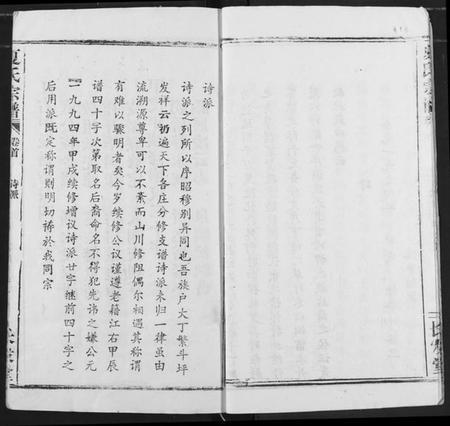 詩派
詩派之列所以序昭穆别異同也吾族户大丁繁斗坪
发祥云礽遍天下各庄分修支譜詩派未归一律虽由
流溯源尊卑可以不紊而山川修阻偶尔相遇其称謂
有难以骤明者矣今岁续修公议謹遵老籍江右甲辰
谱四十字次第取名后裔命名不得犯先讳之嫌公元
一九九四年甲戌续修增议诗派廿字继前四十字之
后用派既定称谓则明切祷於我同宗
夏氏宗譜
卷首
詩派